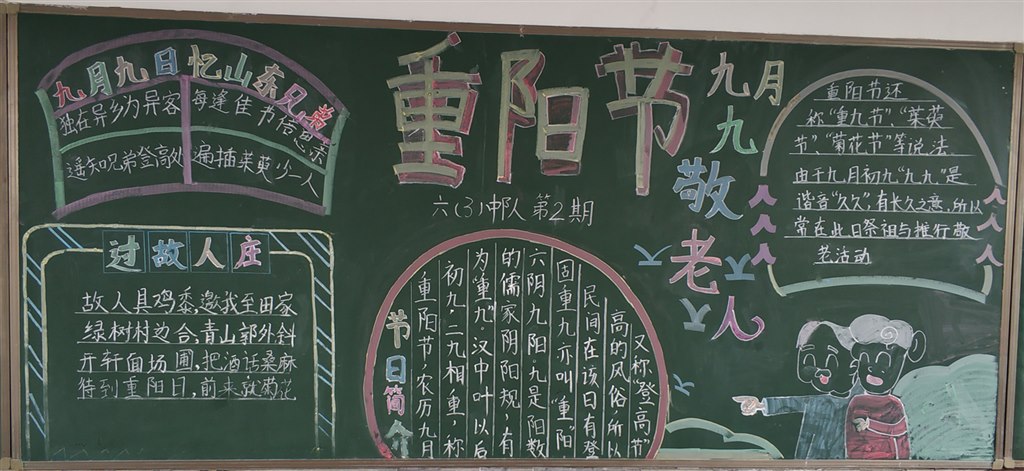 重阳节
六(3)中队 第2期
九月九日忆山东兄弟
独在异乡为异客 每逢佳节倍思亲
遥知兄弟登高处 遍插茱萸少一人
过故人庄
故人具鸡黍,邀我至田家
绿树村边合,青山郭外斜
开轩面场圃,把酒话桑麻
待到重阳日,前来就菊花
节日简介
重阳节,农历九月
初九,二九相重,称
为"重九".汉中叶以后
的儒家阴阳规,有
六阴九阳.九是阳数
固重九亦叫"重阳"
民间在该日有登
高的风俗,所以
又称"登高节"
九月九敬老人
重阳节还
称"重九节""茱萸
节""菊花节"等说法
由于九月初九"九九"是
谐音"久久",有长久之意,所以
常在此日祭祖与推行敬
老活动